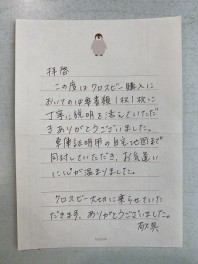 拝啓
この度はクロスビー購入に
おいての必要書類1枚1枚に
丁寧に説明を添えていただ
きありがとうございました。
車庫証明用の自宅地図まで
同封していただき、お気遣い
に心が温まりました。
クロスビー大切に乗らせていた
だきます。ありがとうございました。
敬具